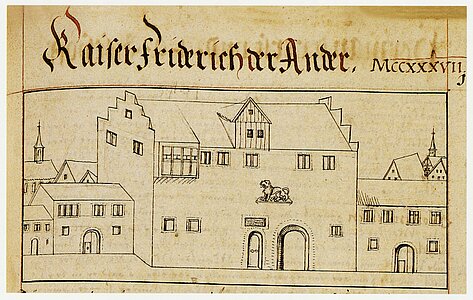 Kaiser Friderich der Ander. MCCXXXVII